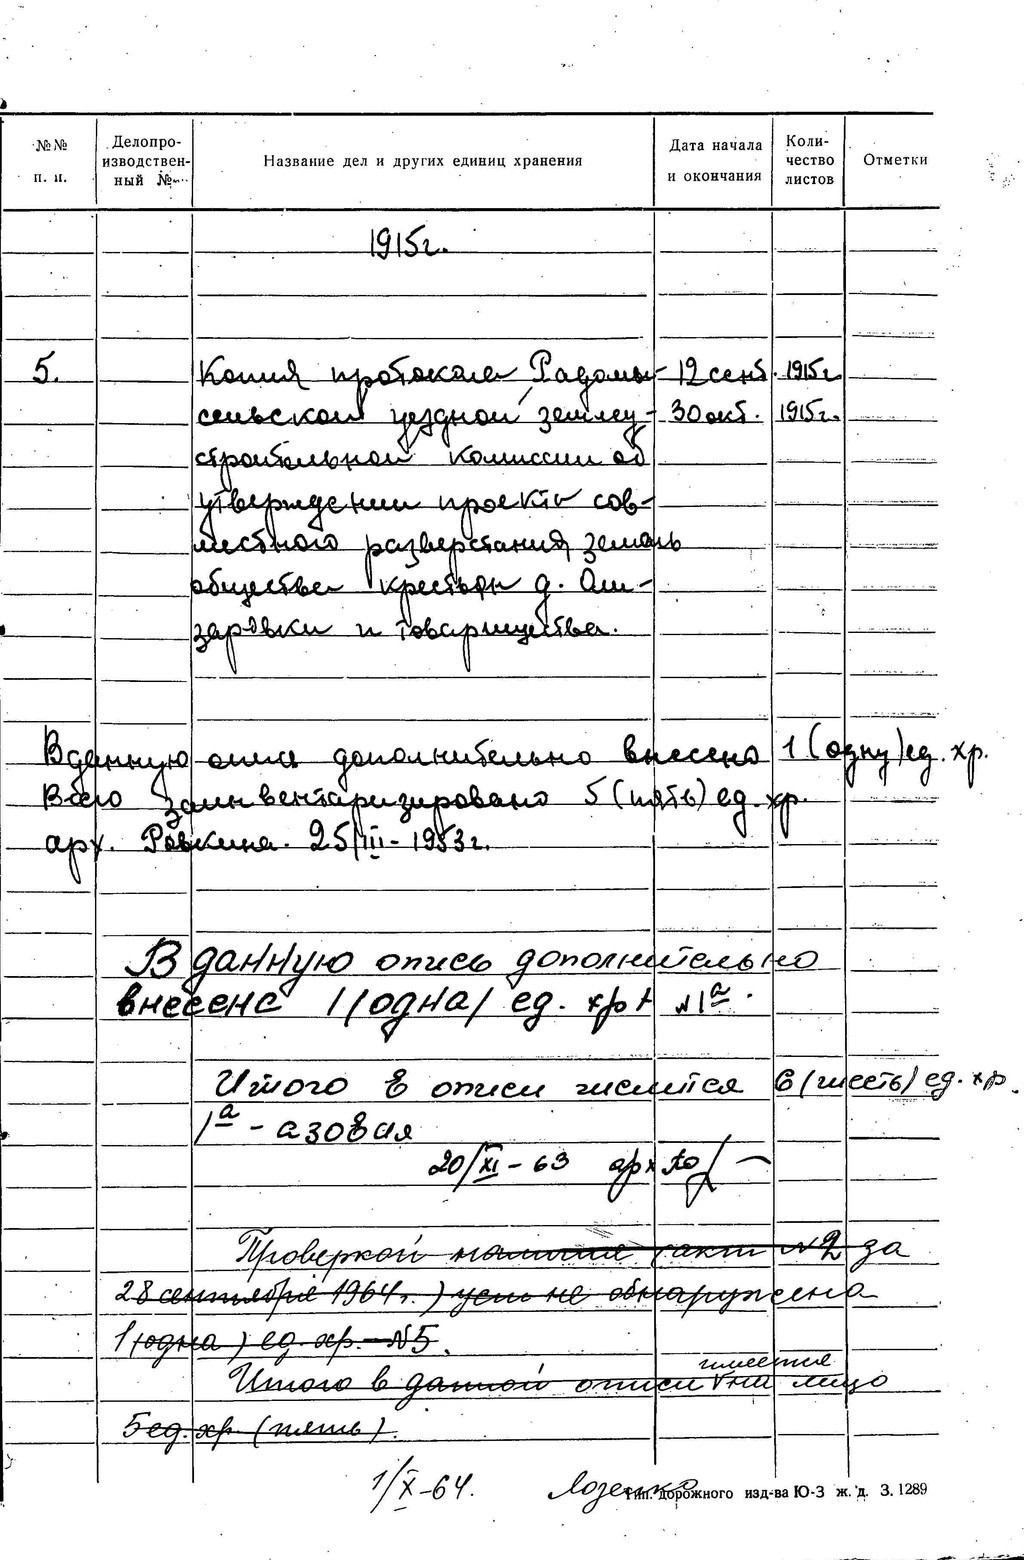 №№ п. п.
Делопро-
изводствен-
ный №
Название дел и других единиц хранения
Дата начала
и окончания
Коли-
чество
листов
Отметки
1915г.
5. Копия протокола Радомы- 12 сент. 1915г
сельской уездной землеу- 30 окт. 1915г.
строительной комиссии об
утверждении проекта сов-
местного разверстания земель
общества крестьян д.
заровки и товарищества.
В данную опись дополнительно внесено 1 (одну) ед. хр.
Всего заинвентаризировано 5 (пять) ед. хр.
арх. Ровкина. 25/III - 1953г.
В данную опись дополнительно
внесена 1 /одна/ ед. хр. №1а.
Итого в описи числится 6 (шесть) ед. хр.
1а - азовая
20/XI - 63 арх
Проверкой наличия (акт №2 за
28 сентября 1964г.) не обнаружена
1 (одна) ед. хр. - №5.
имеется
Итого в данной описи на лицо
5 ед. хр. (пять).
1/X-64. Лозенко
Тип. дорожного изд-ва Ю-З ж. д. З. 1289